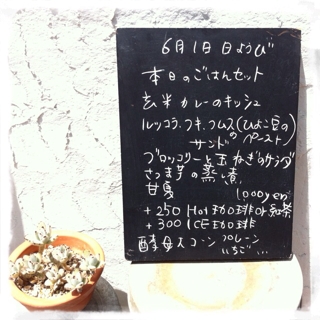 6月1日日ようび
本日のごはんセット
玄米カレーのキッシュ
ルッコラ、フキ、フムス(ひよこ豆の
のペースト)
サンド
ブロッコリーと玉ねぎのサラダ
さつま芋の蒸し煮
甘夏 1000yen
+250 Hot珈琲or紅茶
+300 ICE珈琲
酵母スコーン プレーン
いちご…